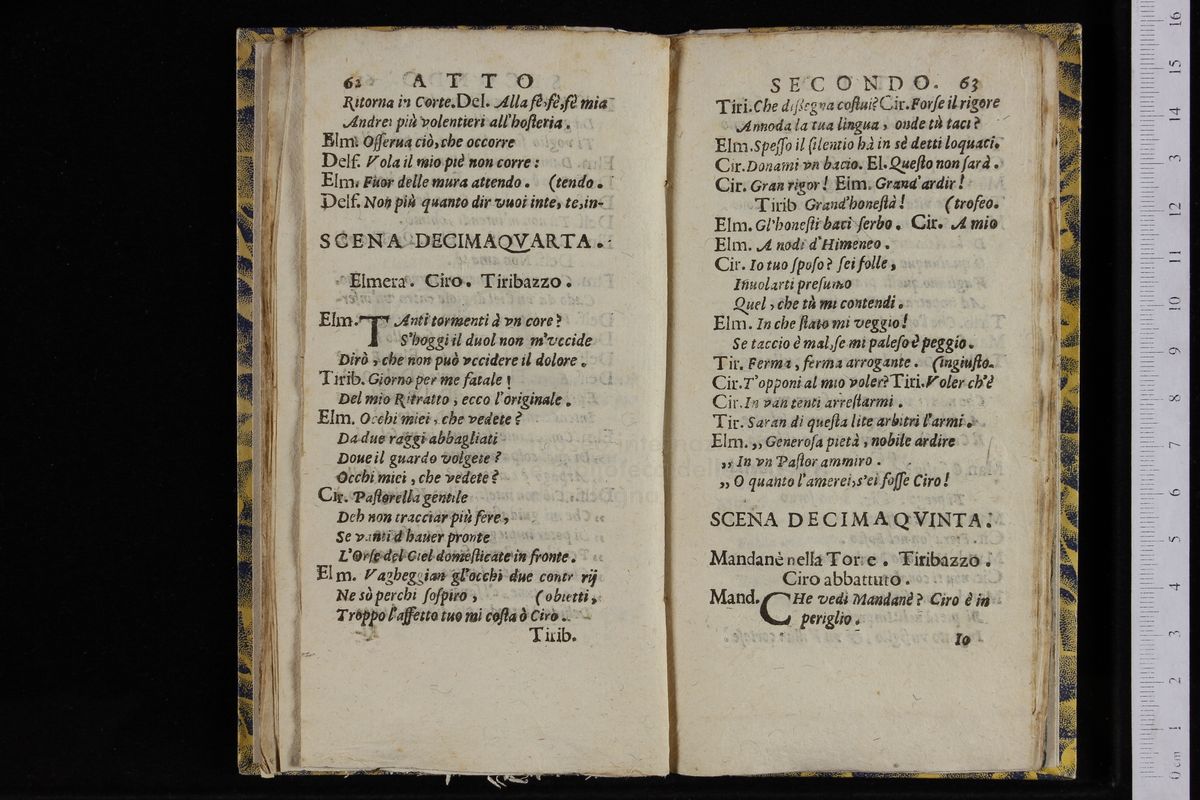 62 ATTO
Ritorna in Corte. Del. Alla fè, fè, fè mia
Andrei più volentieri all'hosteria.
Elm. Osserua ciò, che occorre
Delf. Vola il mio piè non corre:
Elm. Fuor delle mura attendo. (tendo.
Delf. Non più quanto dir vuoi inte, te, in-
SCENA DECIMAQVARTA.
Elmera. Ciro. Tiribazzo.
Elm. TAnti tormenti à vn core?
S'hoggi il duol non m'vccide
Dirò, che non può vccidere il dolore.
Tirib. Giorno per me fatale!
Del mio Ritratto, ecco l'originale.
Elm. Occhi miei, che vedete?
Da due raggi abbagliati
Doue il guardo volgete?
Occhi miei, che vedete?
Cir. Pastorella gentile
Deh non tracciar più fere,
Se vanti d'hauer pronte
L'Orse del Ciel domesticate in fronte.
Elm. Vagheggian gl'occhi due contr rij
Ne sò perchi sospiro, (obietti,
Troppo l'affetto tuo mi costa ò Ciro.
Tirib.
SECONDO. 63
Tiri. Che dissegna costui? Cir. Forse il rigore
Annoda la tua lingua, onde tù taci?
Elm. Spesso il silentio hà in sè detti loquaci.
Cir. Donami vn bacio. El. Questo non sarà.
Cir. Gran rigor! Elm. Grand'ardir!
Tirib Grand'honestà! (trofeo.
Elm. Gl'honesti baci serbo. Cir. A mio
Elm. A nodi d'Himeneo.
Cir. Io tuo sposo? sei folle,
Inuolarti presumo
Quel, che tù mi contendi.
Elm. In che stato mi veggio!
Se taccio è mal, se mi paleso è peggio.
Tir. Ferma, ferma arrogante. (ingiusto.
Cir. T'opponi al mio voler? Tiri. Voler ch'è
Cir. In van tenti arrestarmi.
Tir. Saran di questa lite arbitri l'armi.
Elm. ,, Generosa pietà, nobile ardire
,, In vn Pastor ammiro.
,, O quanto l'amerei, s'ei fosse Ciro!
SCENA DECIMAQVINTA.
Mandanè nella Torre. Tiribazzo.
Ciro abbattuto.
Mand. CHe vedi Mandanè? Ciro è in
periglio.
Io